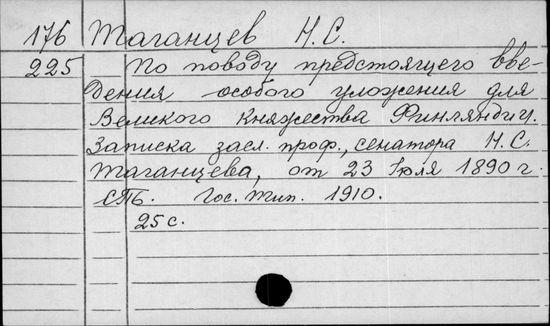 176 Таганцев Н.С.
225 По поводу предстоящего вве-
дения особого уложения для
Великого Княжества Финляндии.
Записка засл. проф., сенатора Н.С.
Таганцева, от 23 Іюля 1890 г.
СПБ. Гос. тип. 1910.
25 с.